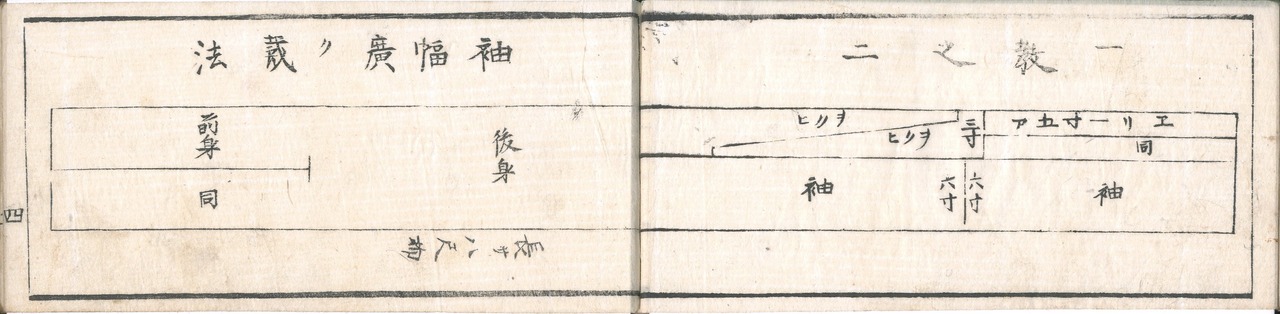 一教之二
エリ一寸五分
同
袖
六寸
六寸
三寸
ヲクヒ
ヲクヒ
袖
袖幅廣ク裁法
後身
前身
同
長サ八尺
四